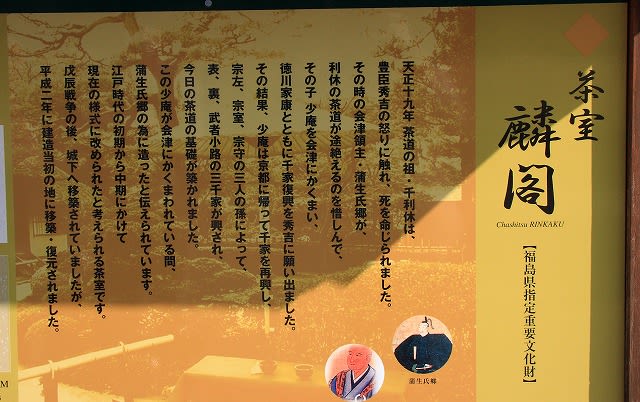 茶室
麟閣
Chashitsu RINKAKU
【福島県指定重要文化財】
天正十九年 茶道の祖・千利休は、
豊臣秀吉の怒りに触れ、死を命じられました。
その時の会津領主・蒲生氏郷が、
利休の茶道が途絶えるのを惜しんで、
その子 少庵を会津にかくまい、
徳川家康とともに千家復興を秀吉に願い出ました。
その結果、少庵は京都に帰って千家を再興し、
宗左、宗室、宗守の三人の孫によって、
表、裏、武者小路の三千家が興され、
今日の茶道の基礎が築かれました。
この少庵が会津にかくまわれている間、
蒲生氏郷の為に造ったと伝えられています。
江戸時代の初期から中期にかけて
現在の様式に改められたと考えられる茶室です。
戊辰戦争の後、城下へ移築されていましたが、
平成二年に建造当初の地に移築・復元されました。
蒲生氏郷
M